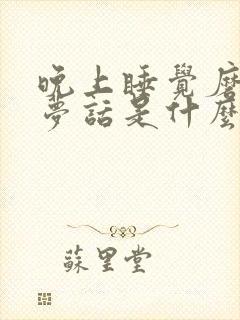 晚上睡覺磨
夢話是什麼
蘇里堂